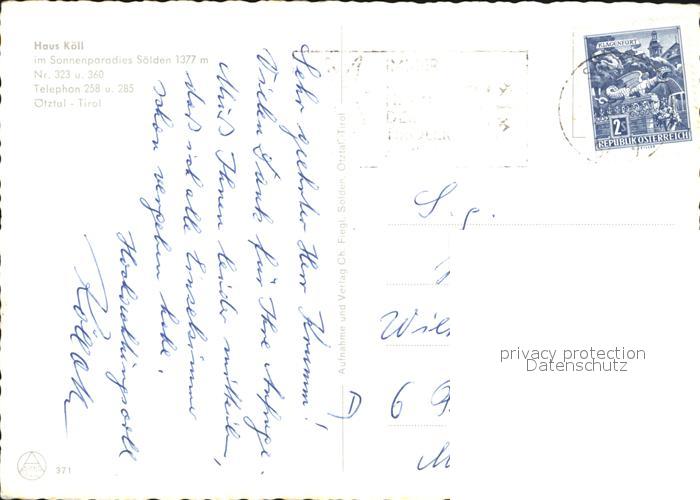 Haus Köll
im Sonnenparadies Sölden 1377 m
Nr. 323 u. 360
Telephon 258 u. 285
Ötztal - Tirol
Sehr geehrter Herr Krumm!
Vielen Dank für Ihre Anfrage.
Muß Ihnen leider mitteilen,
daß ich alle Einzelzimmer
schon vergeben habe.
Hochachtungsvoll
Aufnahme und Verlag Ch. Fiegl, Sölden, Ötztal-Tirol
KLAGENFURT
2S
REPUBLIK ÖSTERREICH
S. g.
D 6
privacy protection
Datenschutz
371